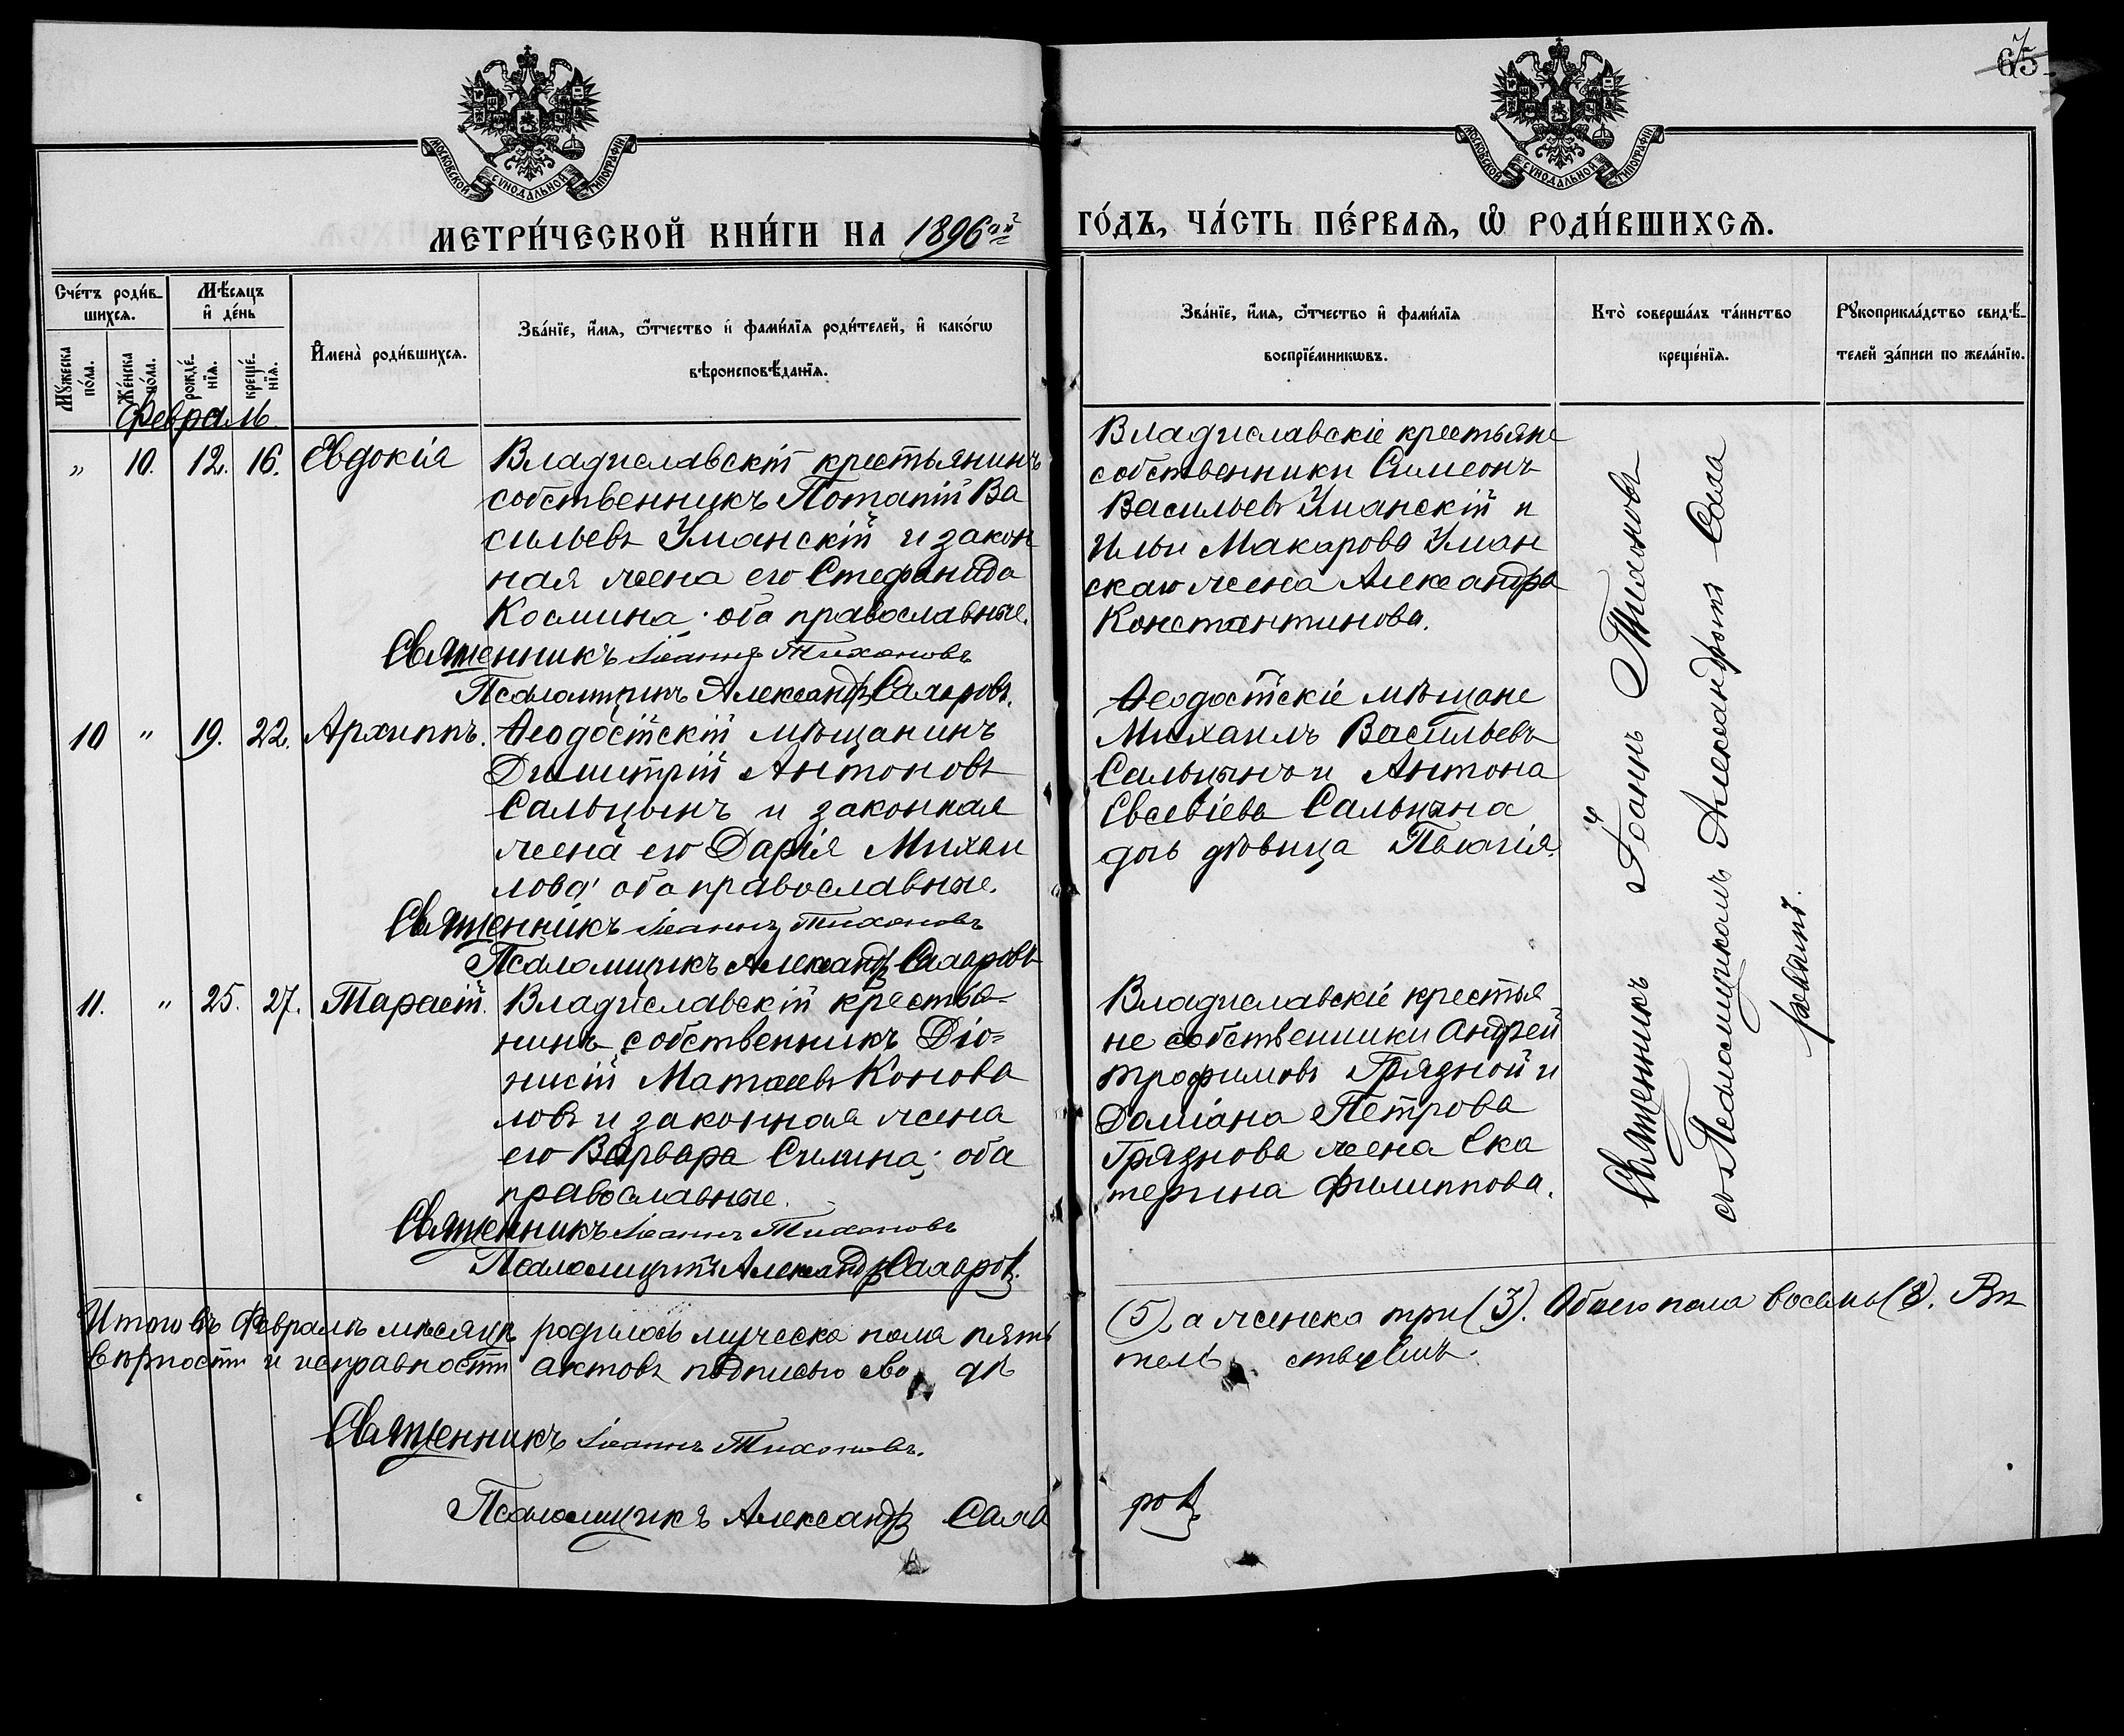 65
7
МОСКОВСКОЙ СУНОДАЛЬНОЙ ТИПОГРАФІИ
МОСКОВСКОЙ СУНОДАЛЬНОЙ ТИПОГРАФІИ
МЕТРИ́ЧЕСКОЙ КНИ́ГИ НА 1896ой
ГО́ДЪ, ЧА́СТЬ ПЕ́РВАѦ, Ѡ҆ РОДИ́ВШИХСѦ.
Сче́тъ роди́в-
шихсѧ.
Мѹ́жеска
по́ла.
Же́нска
по́ла.
Мѣ́сѧцъ
и҆ де́нь
рожде́-
нїѧ.
креще́-
нїѧ.
И҆мена̀ роди́вшихсѧ.
Зва́нїе, и҆́мѧ, ѻ҆́тчество и҆ фами́лїѧ роди́телей, и҆ како́гѡ
вѣроисповѣ́данїѧ.
Зва́нїе, и҆́мѧ, ѻ҆́тчество и҆ фами́лїѧ
воспрїе́мникѡвъ.
Кто̀ соверша́лъ та́инство
креще́нїѧ.
Рѹкоприкла́дство свидѣ́-
телей за́писи по жела́нїю.
Февраль
„ 10. 12. 16. Евдокія
Владиславскій крестьянинъ
собственникъ Потапій Ва
сильевъ Уманскій и закон
ная жена его Стефанида
Космина; оба православные.
Священникъ Іоаннъ Тихоновъ
Псаломщикъ Александръ Сахаровъ.
Владиславскіе крестьяне
собственники Симеонъ
Васильевъ Уманскій и
Ильи Макарова Уман
скаго жена Александра
Константинова.
10 „ 19. 22. Архиппъ.
Ѳеодосійскій мѣщанинъ
Димитрій Антоновъ
Сальцынъ и законная
жена его Дарія Михаи
лова; оба православные.
Священникъ Іоаннъ Тихоновъ
Псаломщикъ Александръ Сахаровъ
Ѳеодосійскіе мѣщане
Михаилъ Васильевъ
Сальцынъ и Антона
Евсевіева Сальцына
дочь дѣвица Пелагія.
11. „ 25. 27. Тарасій.
Владиславскій крестья-
нинъ собственникъ Діо-
нисій Матѳеевъ Конова
ловъ и законная жена
его Варвара Силина; оба
православные.
Священникъ Іоаннъ Тихоновъ
Псаломщикъ Александръ Сахаровъ.
Владиславскіе крестья
не собственники Андрей
Трофимовъ Грязной и
Даміана Петрова
Грязнова жена Ека
терина Филиппова.
Священникъ Іоаннъ Тихоновъ
съ Псаломщикомъ Александромъ Саха
ровымъ.
Итого въ Февралѣ мѣсяцѣ родилось мужеска пола пять
(5), а женска три (3). Обоего пола восемь (8). Въ
вѣрности и исправности актовъ подписью сво дѣ
тель ствуемъ.
Священникъ Іоаннъ Тихоновъ.
Псаломщикъ Александръ Саха
ровъ